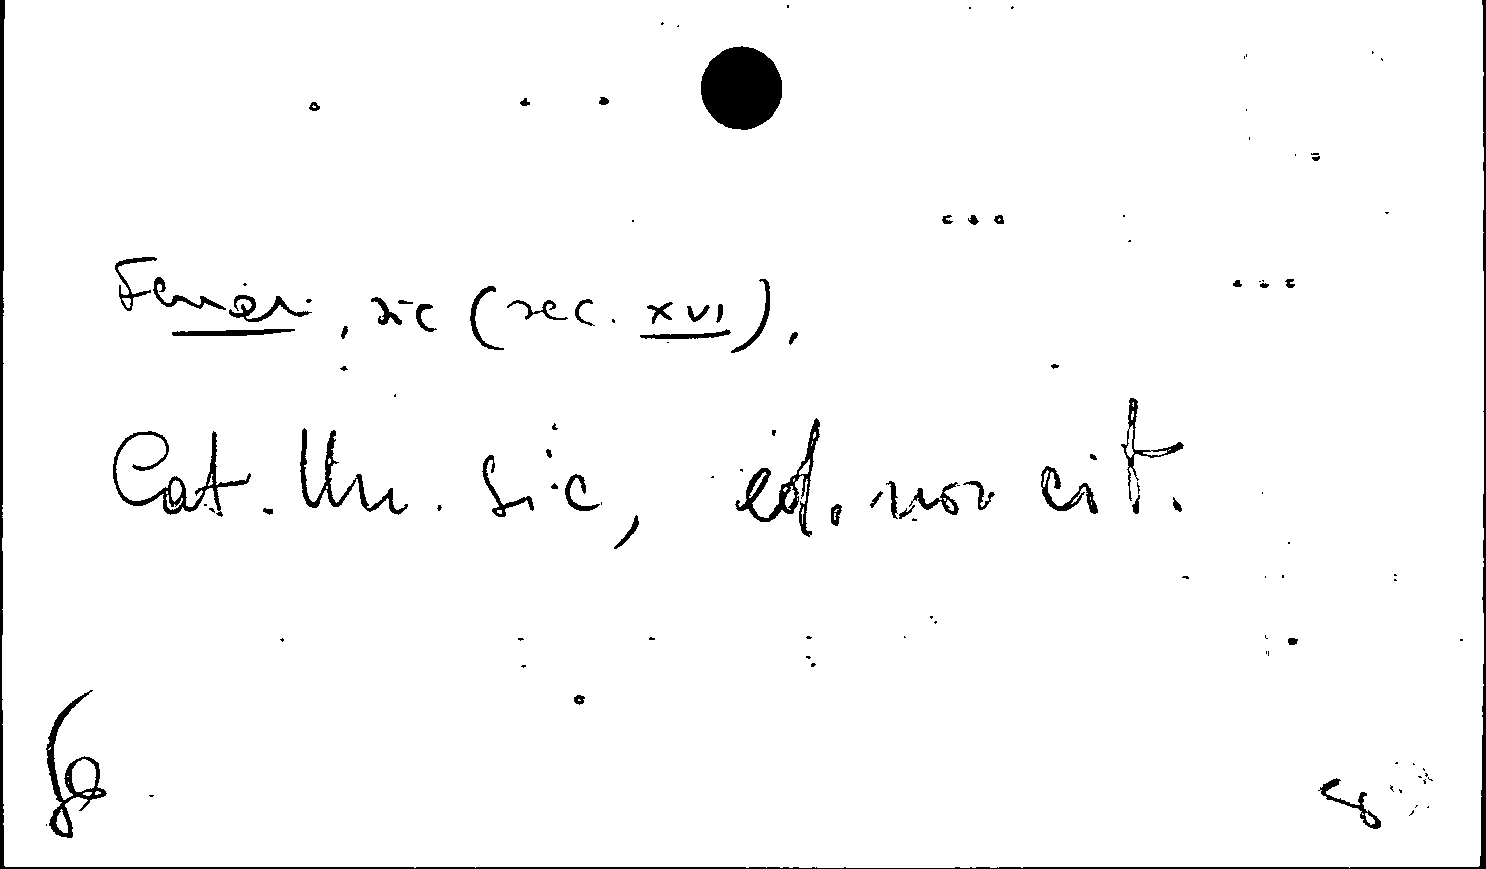 Ferrar, sic (sec. XVI).
Cat. Un. sic, ed. non cit.